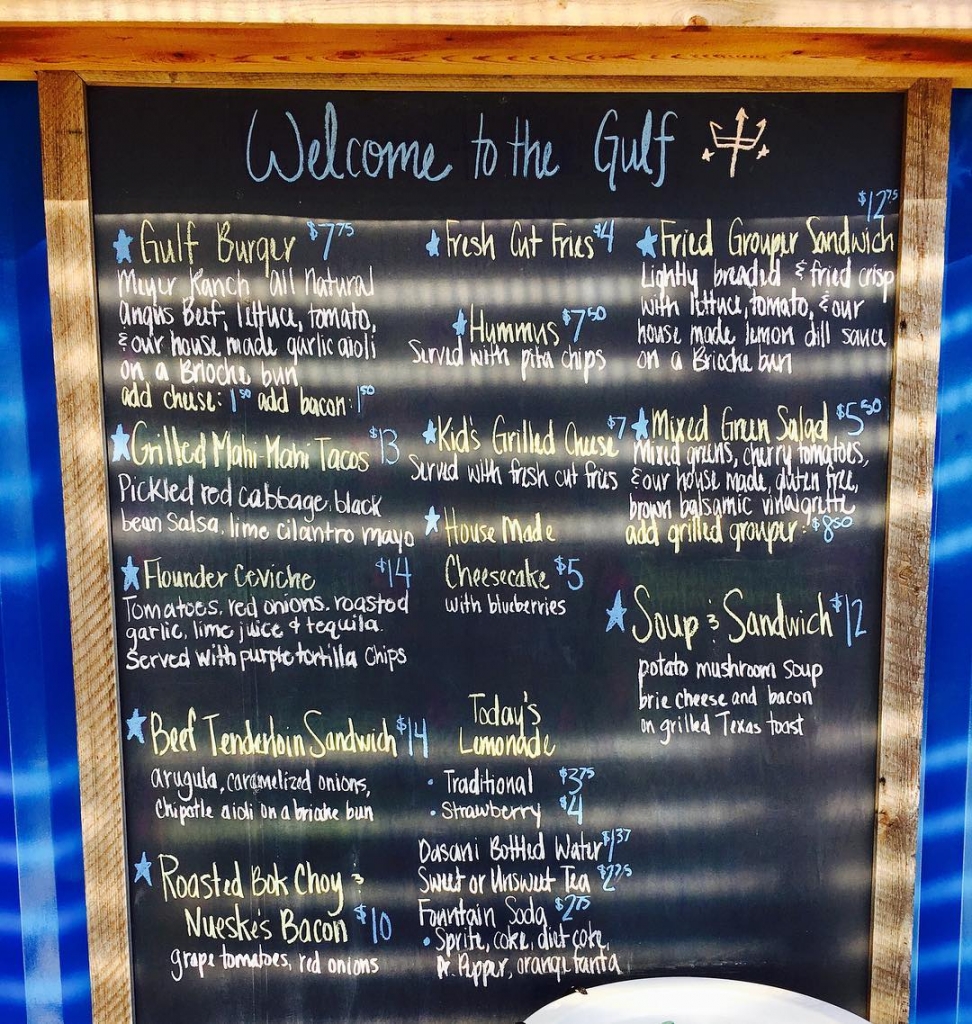 Welcome to the Gulf
Gulf Burger $7.75
Meyer Ranch All Natural
Angus Beef, lettuce, tomato,
& our house made garlic aioli
on a Brioche bun
add cheese: 1.50 add bacon: 1.50
Grilled Mahi-Mahi Tacos $13
Pickled red cabbage, black
bean salsa, lime cilantro mayo
Flounder Ceviche $14
Tomatoes, red onions, roasted
garlic, lime juice & tequila.
Served with purple tortilla chips
Beef Tenderloin Sandwich $14
arugula, caramelized onions,
chipotle aioli on a brioche bun
Roasted Bok Choy &
Nueske's Bacon $10
grape tomatoes, red onions
Fresh Cut Fries $4
Hummus $7.50
Served with pita chips
Kid's Grilled Cheese $7
Served with fresh cut fries
House Made
Cheesecake $5
with blueberries
Today's
Lemonade
• Traditional $3.75
• Strawberry $4
Dasani Bottled Water $1.37
Sweet or Unsweet Tea $2.25
Fountain Soda $2.75
• Sprite, coke, diet coke,
Dr. Pepper, orange fanta
$12.75
Fried Grouper Sandwich
Lightly breaded & fried crisp
with lettuce, tomato, & our
house made lemon dill sauce
on a Brioche bun
Mixed Green Salad $5.50
Mixed greens, cherry tomatoes,
& our house made, gluten free,
brown balsamic vinaigrette
add grilled grouper: $8.50
Soup & Sandwich $12
potato mushroom soup
brie cheese and bacon
on grilled Texas toast